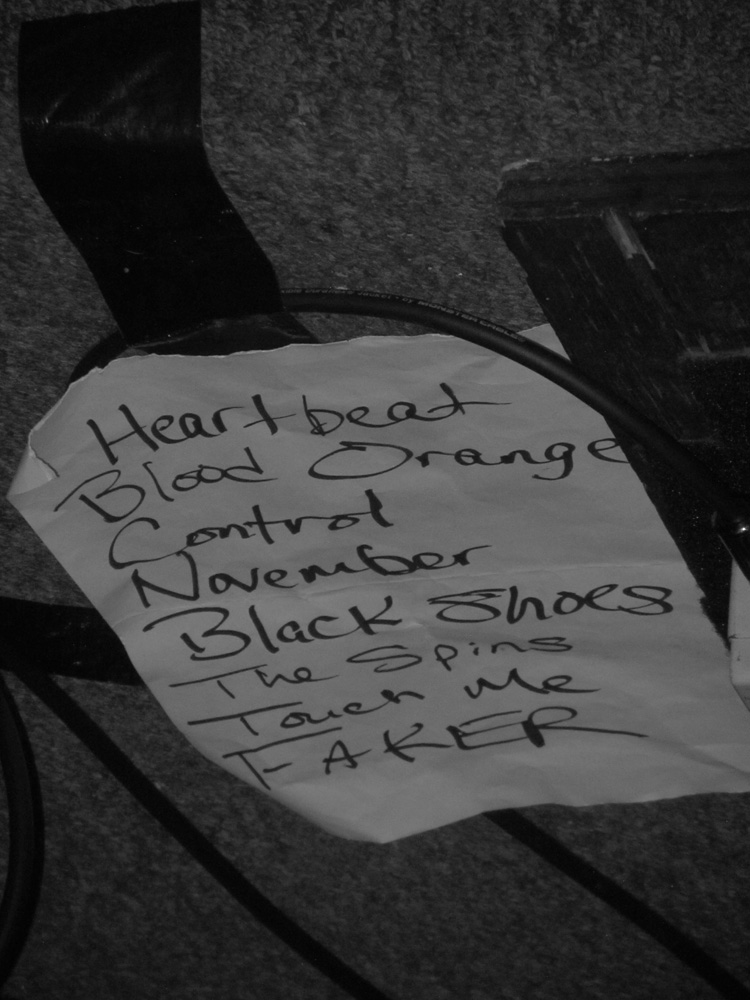 Heartbeat
Blood Orange
Control
November
Black Shoes
The Spins
Touch Me
FAKER